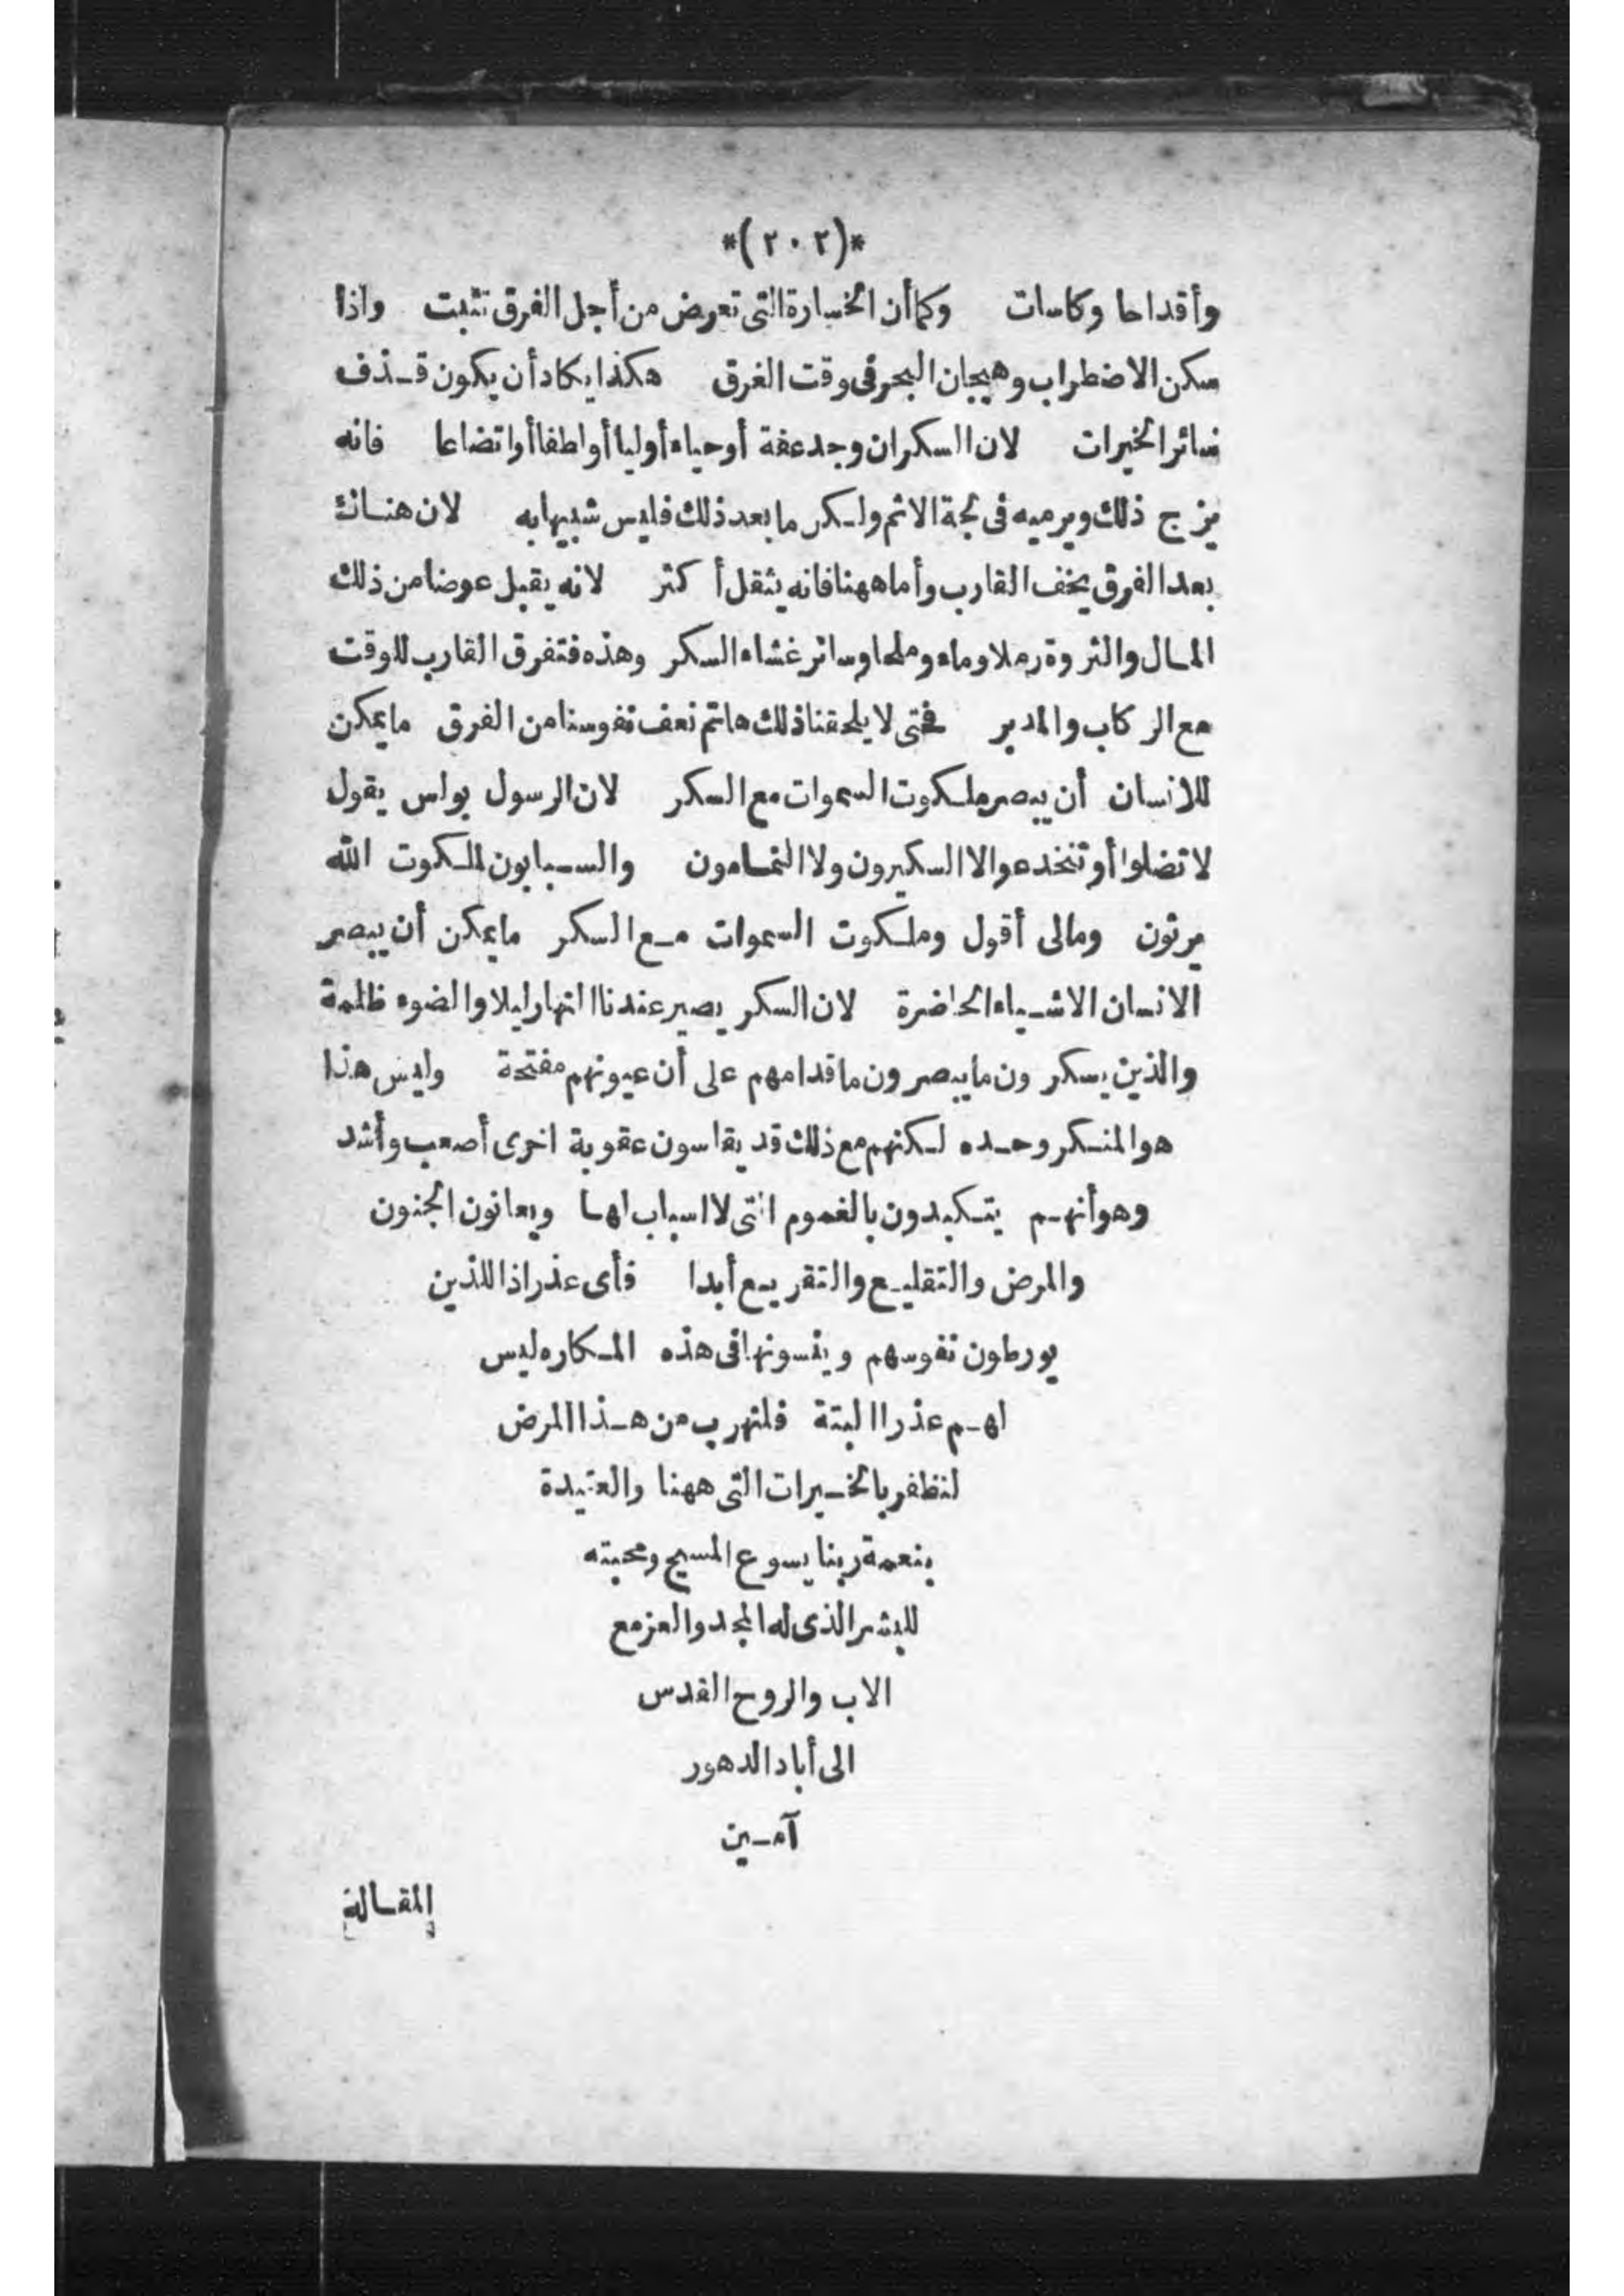 *(٢٠٢)*
وأقداحا وكاسات وكما أن الخسارة التى تعرض من أجل الغرق تثبت واذا
سكن الاضطراب وهيجان البحر فى وقت الغرق هكذا يكاد أن يكون قذف
سائر الخيرات لان السكران وجد عفة أو حياء أو لبا أو لطفا أو اتضاعا فانه
يزج ذلك ويرميه فى لجة الاثم ولكن ما بعد ذلك فليس شبيها به لان هناك
بعد الغرق يخف القارب وأما ههنا فانه يثقل أكثر لانه يقبل عوضا من ذلك
المال والثروة رملا وماء وملحا وسائر غشاء السكر وهذه فتغرق القارب للوقت
مع الركاب والمدبر فحتى لا يلحقنا ذلك هاتم نعف نفوسنا من الغرق ما يمكن
للانسان أن يبصر ملكوت السموات مع السكر لان الرسول بولس يقول
لا تضلوا أو تنخدعوا لا السكيرون ولا النمامون والسبابون لملكوت الله
يرثون ومالى أقول وملكوت السموات مع السكر ما يمكن أن يبصر
الانسان الاشياء الحاضرة لان السكر يصير عندنا النهار ليلا والضوء ظلمة
والذين يسكرون ما يبصرون ما قدامهم على أن عيونهم مفتحة وليس هذا
هو المنكر وحده لكنهم مع ذلك قد يقاسون عقوبة اخرى أصعب وأشد
وهو أنهم يتكبدون بالغموم التى لا اسباب لها ويعانون الجنون
والمرض والتقليع والتقريع أبدا فأى عذر اذا للذين
يورطون نفوسهم وينسونها فى هذه المكاره ليس
لهم عذرا البتة فلنهرب من هذا المرض
لنظفر بالخيرات التى ههنا والعتيدة
بنعمة ربنا يسوع المسيح ومحبته
للبشر الذى له المجد والعز مع
الاب والروح القدس
الى أباد الدهور
آمين
المقالة